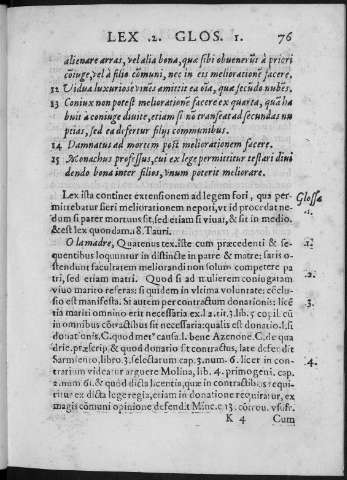 LEX .2. GLOS. 1. 76
alienare arras, vel alia bona, quæ sibi obuenerũt à priori
cõiuge, vel à filio cõmuni, nec in eis meliorationẽ facere.
12 Vidua luxuriose viuẽs amittit ea õia, quæ secũdo nubẽs.
13 Coniux non potest meliorationẽ facere ex quarta, quã ha
buit a coniuge diuite, etiam si nõ transeat ad secundas nu
ptias, sed ea defertur filijs communibus.
14 Damnatus ad mortem potest meliorationem facere.
15 Monachus professus, cui ex lege permittitur testari diui
dendo bona inter filios, vnum poterit meliorare.
Lex ista continet extensionem ad legem fori, qua per- Glossa
mittebatur fieri meliorationem nepoti, vt id procedat ne- 1.
dum si pater mortuus sit, sed etiam si viuat, & sit in medio.
& est lex quondam 18. Tauri.
O la madre, Quatenus tex. iste cum præcedenti & se- 1.
quentibus loquuntur in distincte in patre & matre: satis o-
stendunt facultatem meliorandi non solum competere pa
tri, sed etiam matri. Quod si ad mulierem coniugatam 2.
viuo marito referas: si quidem in vltima voluntate: cõclu-
sio est manifesta. Si autem per contractum donationis: licẽ 3.
tia mariti omnino erit necessaria ex l. 2. tit. 3. lib. 5. cop. il cũ
in omnibus cõtractibus sit necessaria: qualis est donatio. l. si
donationis. C. quod met⁹ causa. l. bene Azenone. C. de qua
drie. præscrip. & quod donatio sit contractus, late defendit
Sarmiento, libro 3. selectarum cap. 3. num. 6. licet in con- 4.
trarium videatur arguere Molina, lib. 4. primogeni. cap.
2. num 61. & quòd dicta licentia, quæ in contractibus requi
ritur ex dicta lege regia, etiam in donatione requiratur, ex
magis cõmuni opinione defendit
K 4 Cum